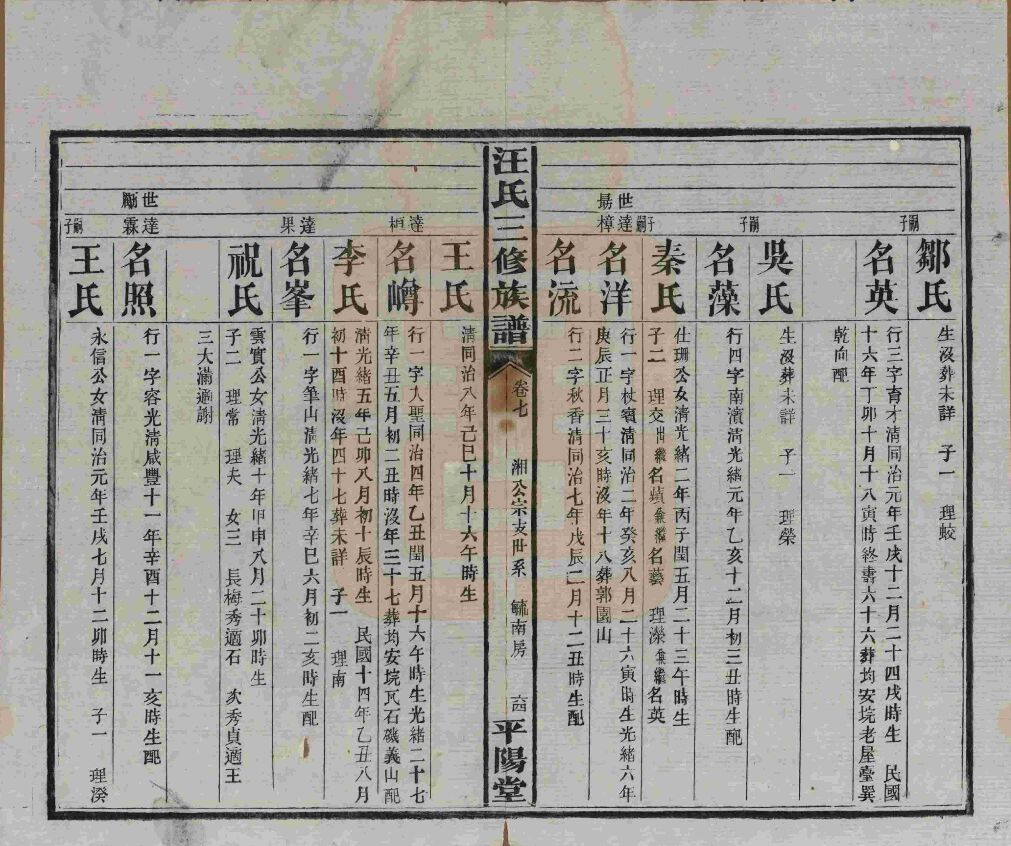 嗣子
鄒氏
生沒葬未詳 子一 理蛟
名英
行三字育才清同治元年壬戌十二月二十四戌時生 民國
十六年丁卯十月十八寅時終壽六十六葬均安垸老屋臺巽
乾向配
嗣子
吳氏
生沒葬未詳 子一 理榮
名藻
行四字南濱清光緒元年乙亥十二月初三丑時生配
嗣子
秦氏
仕珊公女清光緒二年丙子閏五月二十三午時生
子二 理交出繼名蘋兼繼名藝 理濚兼繼名英
世
達樟
名洋
行一字杖賓清同治二年癸亥八月二十六寅時生光緒六年
庚辰正月三十亥時沒年十八葬郭園山
名流
行二字秋香清同治七年戊辰二月十二丑時生配
汪氏三修族譜
卷七 湘公宗支世系 毓南房 六四
平陽堂
王氏
清同治八年己巳十月十六午時生
達桓
名嶟
行一字大聖同治四年乙丑閏五月十六午時生光緒二十七
年辛丑五月初二丑時沒年三十七葬均安垸瓦石磯義山配
李氏
清光緒五年己卯八月初十辰時生 民國十四年乙丑八月
初十酉時沒年四十七葬未詳 子一 理南
達果
名峯
行一字筆山清光緒七年辛巳六月初二亥時生配
祝氏
雲實公女清光緒十年甲申八月二十卯時生
子二 理常 理夫 女三 長梅秀適石 次秀貞適王
三大滿適謝
世
達霖
名照
行一字容光清咸豐十一年辛酉十二月十一亥時生配
嗣子
王氏
永信公女清同治元年壬戌七月十二卯時生 子一 理湀